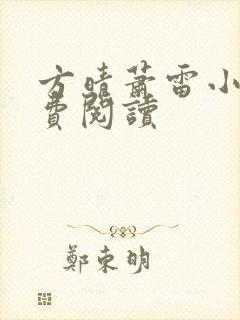 方晴蕭雷小
費閱讀
鄭東明